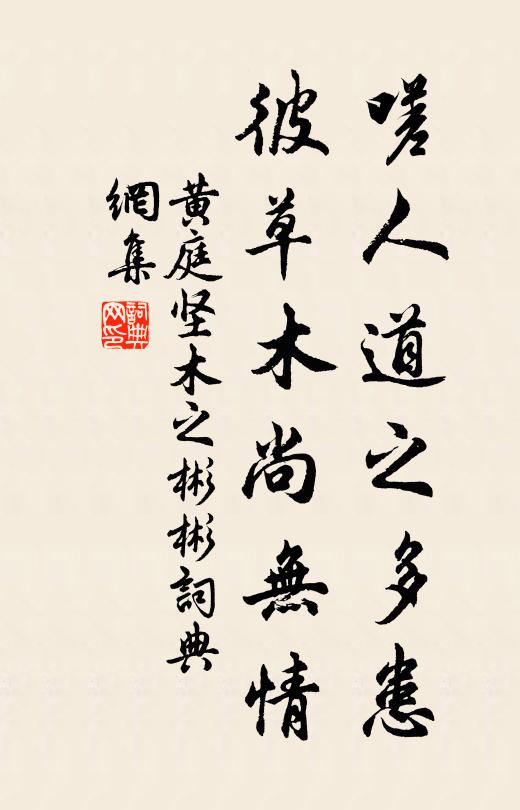 嗟人道之多患
彼草木尚無情
黄庭坚木之彬彬詞典
網集
詞典网印